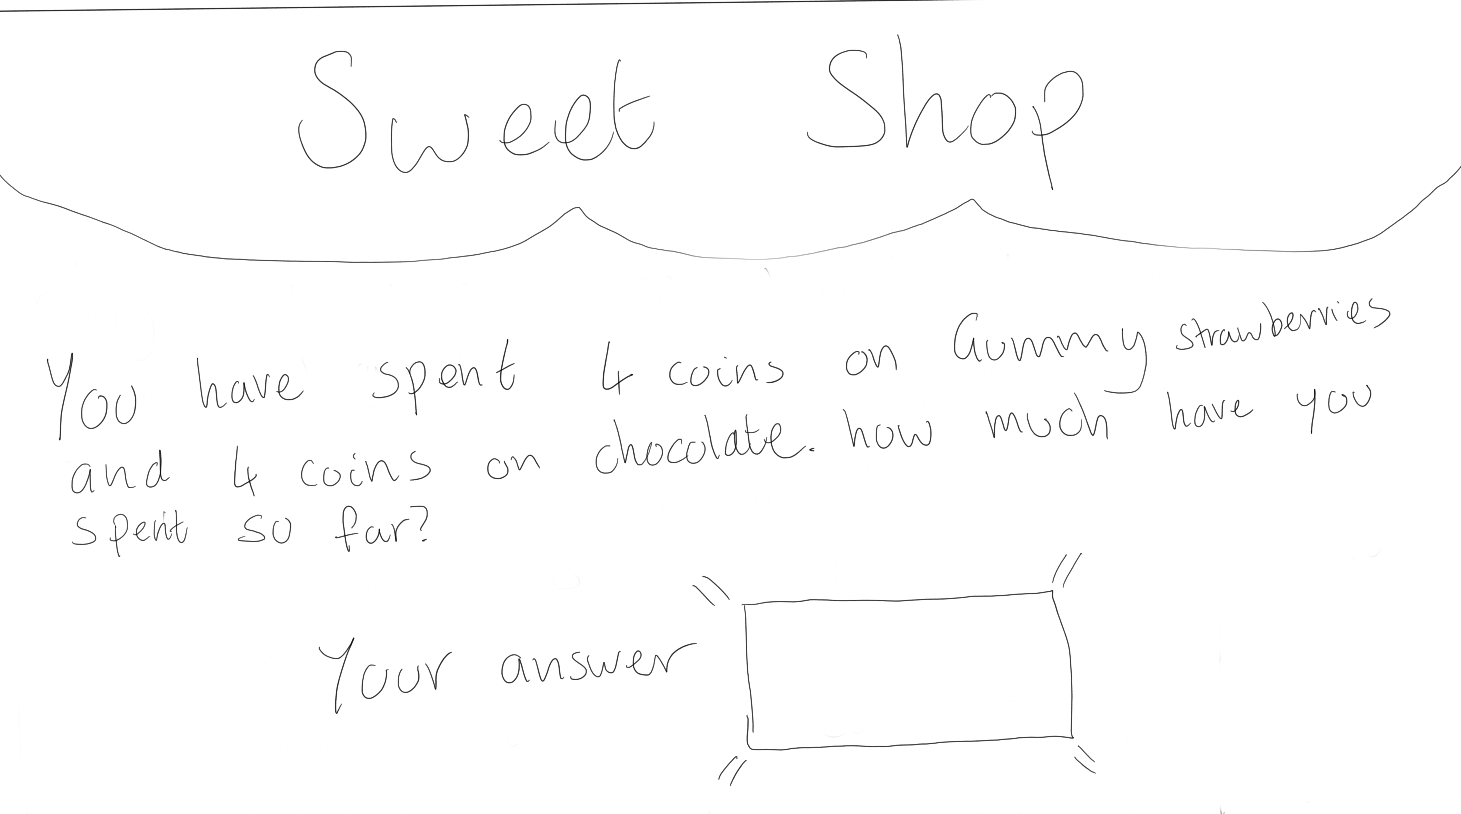 Sweet Shop
You have spent 4 coins on Gummy strawberries
and 4 coins on chocolate. how much have you
spent so far?
Your answer